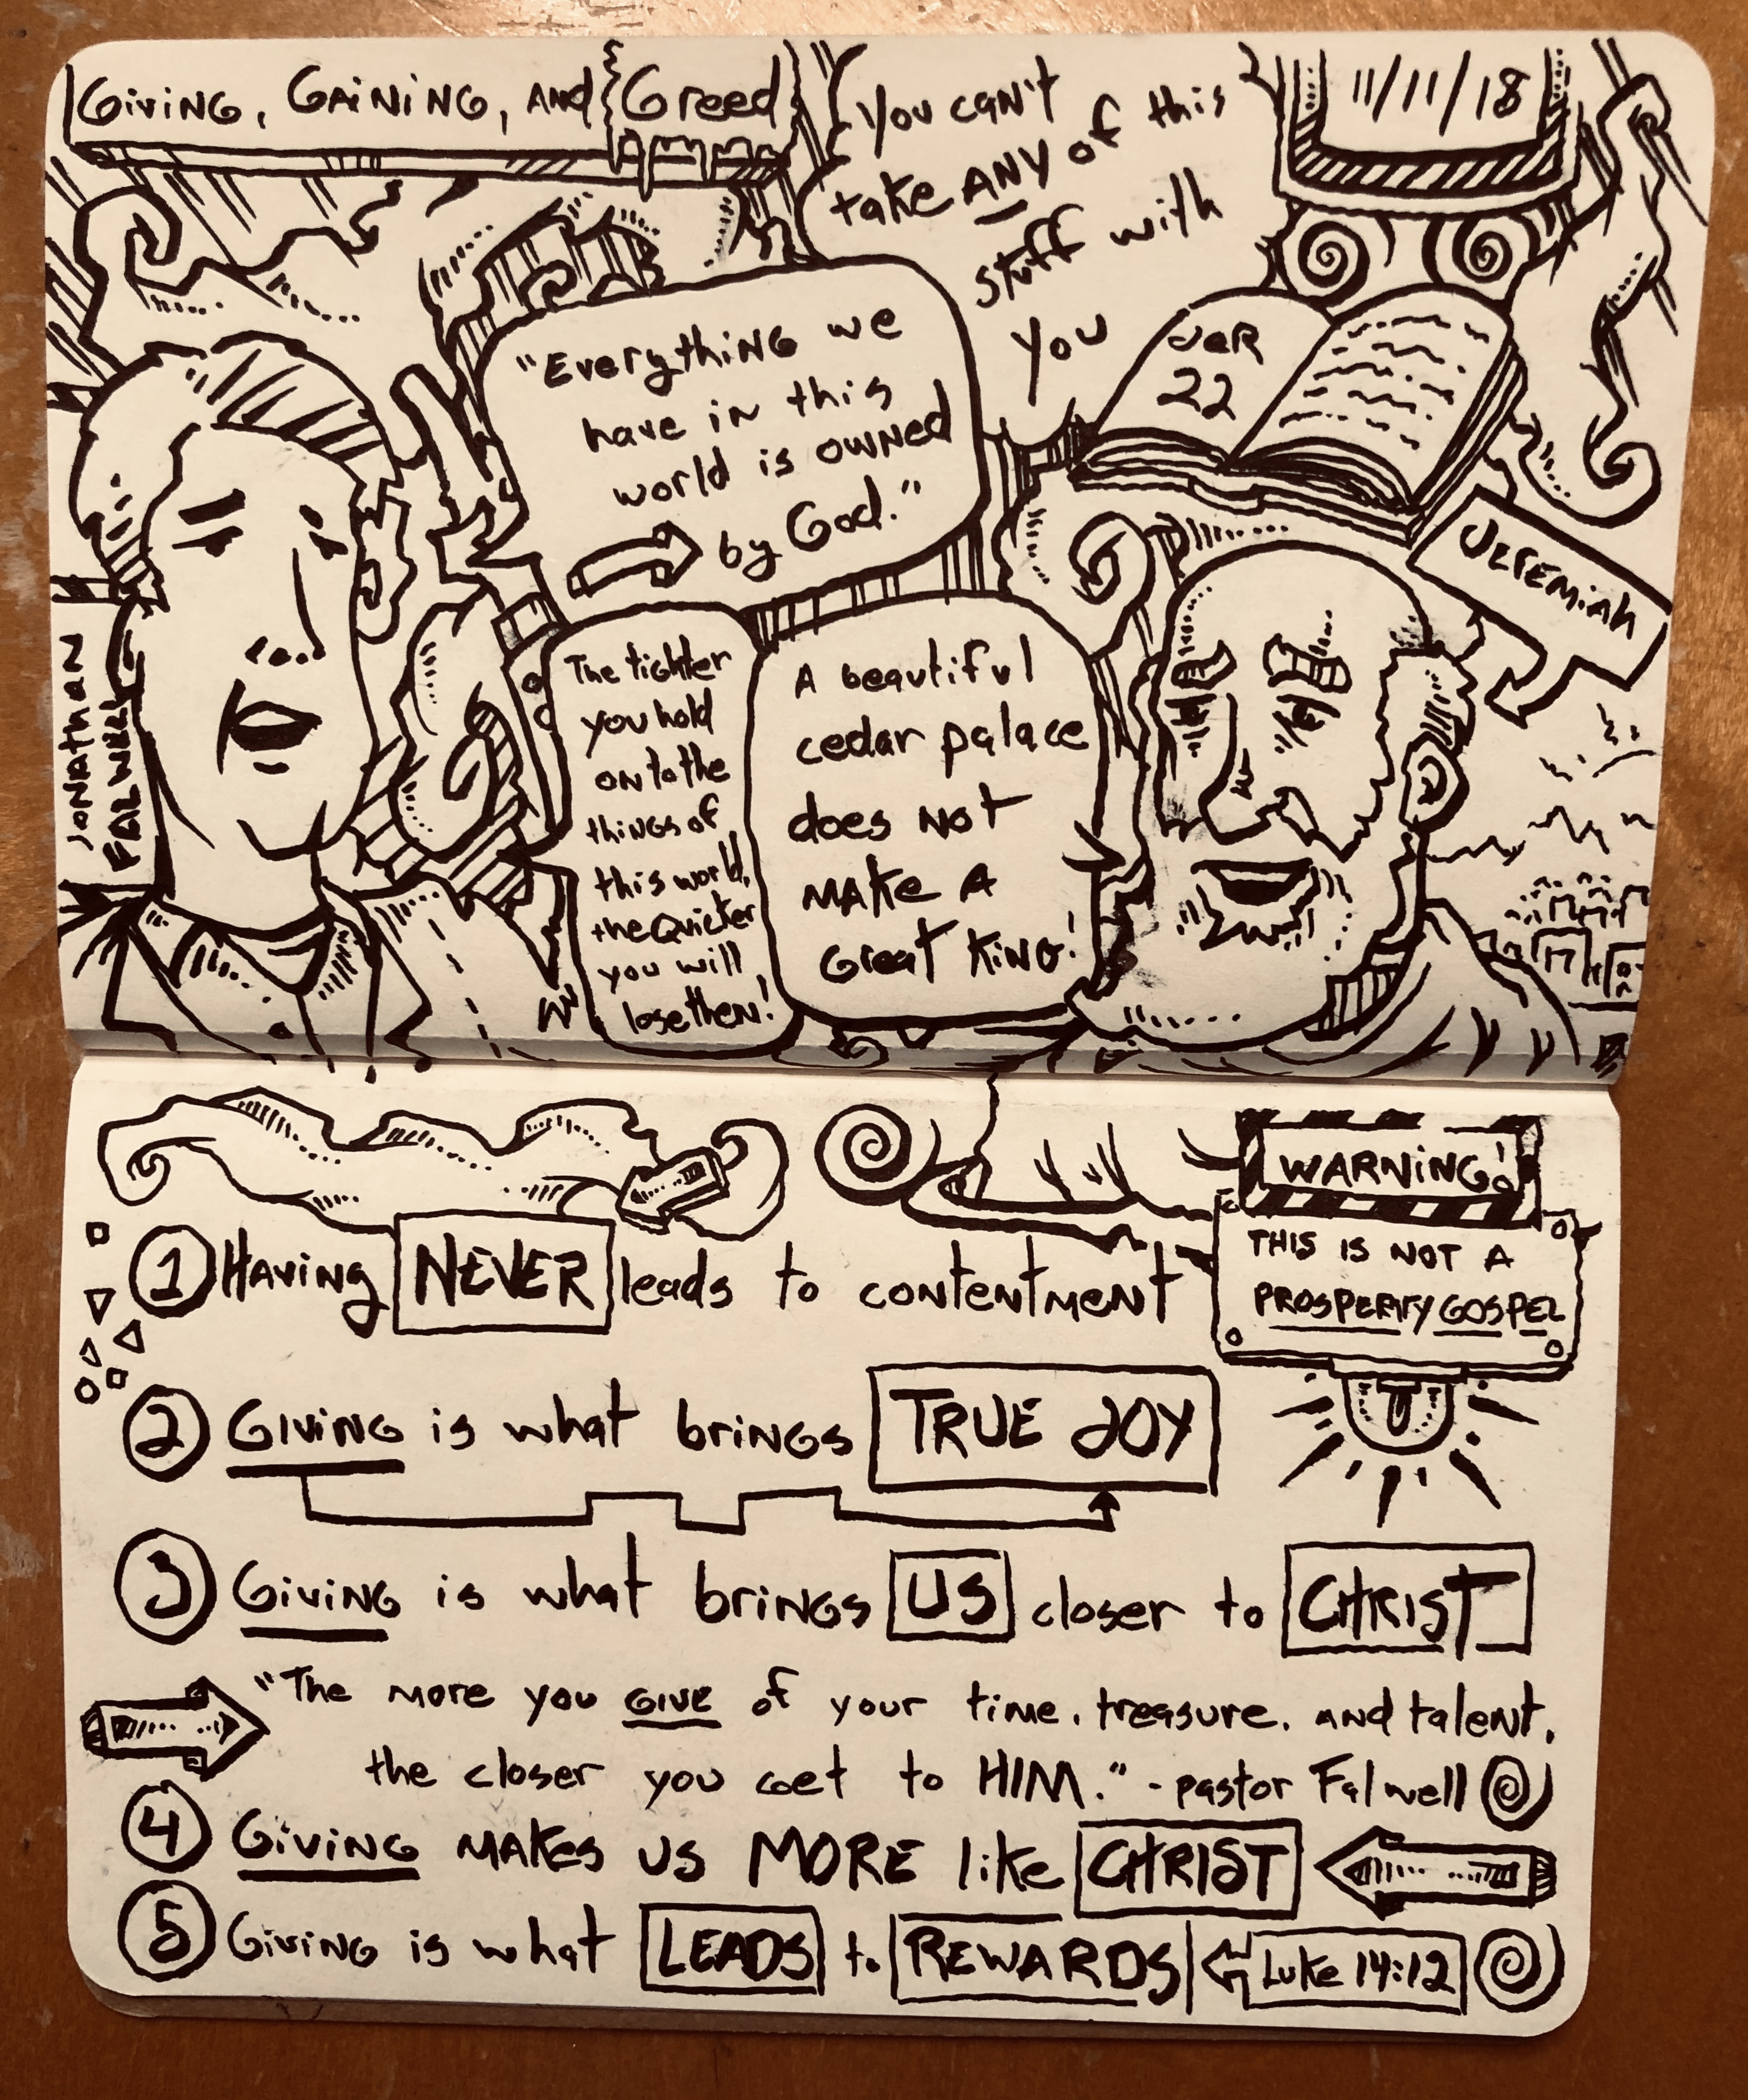 Giving, Gaining, and Greed
You can't
take ANY of this
stuff with
you
11/11/18
JER
22
"Everything we
have in this
world is owned
by God."
Jeremiah
Jonathan
Falwell
The tighter
you hold
on to the
things of
this world,
the Quicker
you will
lose them!
A beautiful
cedar palace
does not
make a
Great King!
WARNING!
THIS IS NOT A
PROSPERITY GOSPEL
1 Having NEVER leads to contentment
2 Giving is what brings TRUE JOY
3 Giving is what brings US closer to CHRIST
"The more you GIVE of your time, treasure, and talent,
the closer you get to HIM." - pastor Falwell
4 Giving makes us MORE like CHRIST
5 Giving is what LEADS to REWARDS Luke 14:12